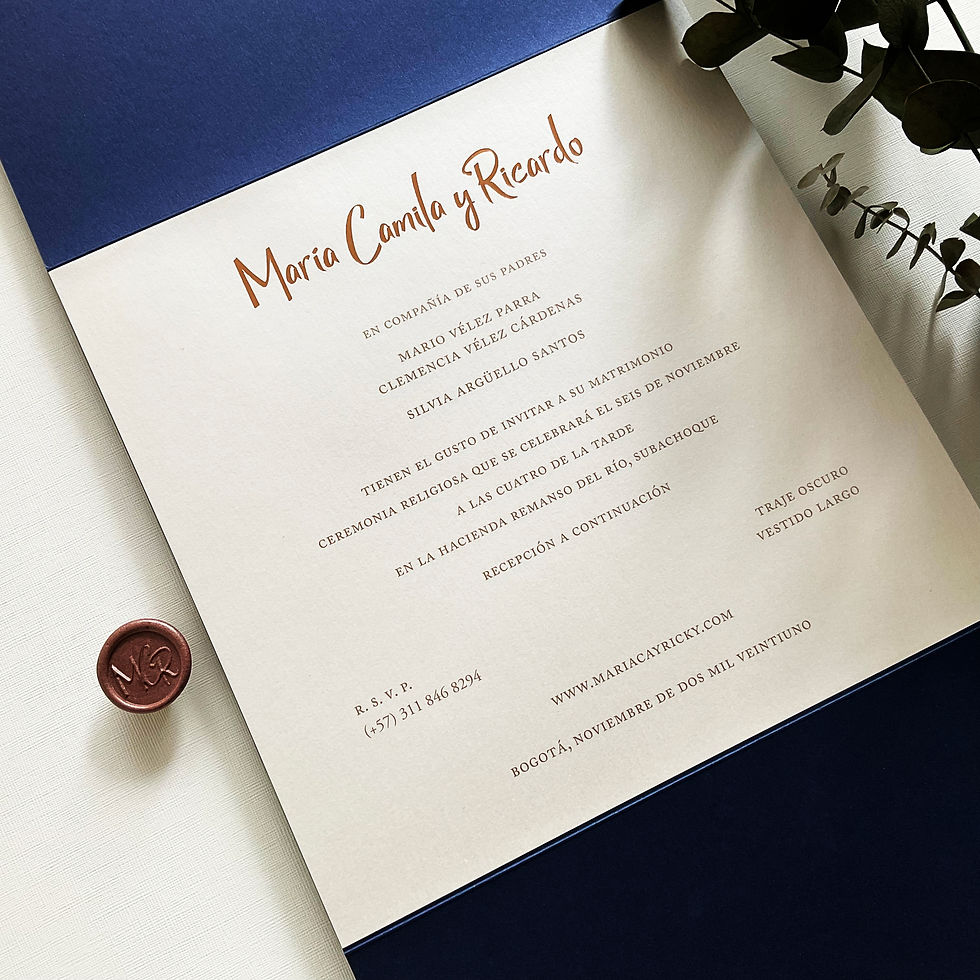 María Camila y Ricardo
EN COMPAÑÍA DE SUS PADRES
MARIO VÉLEZ PARRA
CLEMENCIA VÉLEZ CÁRDENAS
SILVIA ARGÜELLO SANTOS
TIENEN EL GUSTO DE INVITAR A SU MATRIMONIO
CEREMONIA RELIGIOSA QUE SE CELEBRARÁ EL SEIS DE NOVIEMBRE
A LAS CUATRO DE LA TARDE
EN LA HACIENDA REMANSO DEL RÍO, SUBACHOQUE
RECEPCIÓN A CONTINUACIÓN
TRAJE OSCURO
VESTIDO LARGO
R. S. V. P.
(+57) 311 846 8294
WWW.MARIACAYRICKY.COM
BOGOTÁ, NOVIEMBRE DE DOS MIL VEINTIUNO